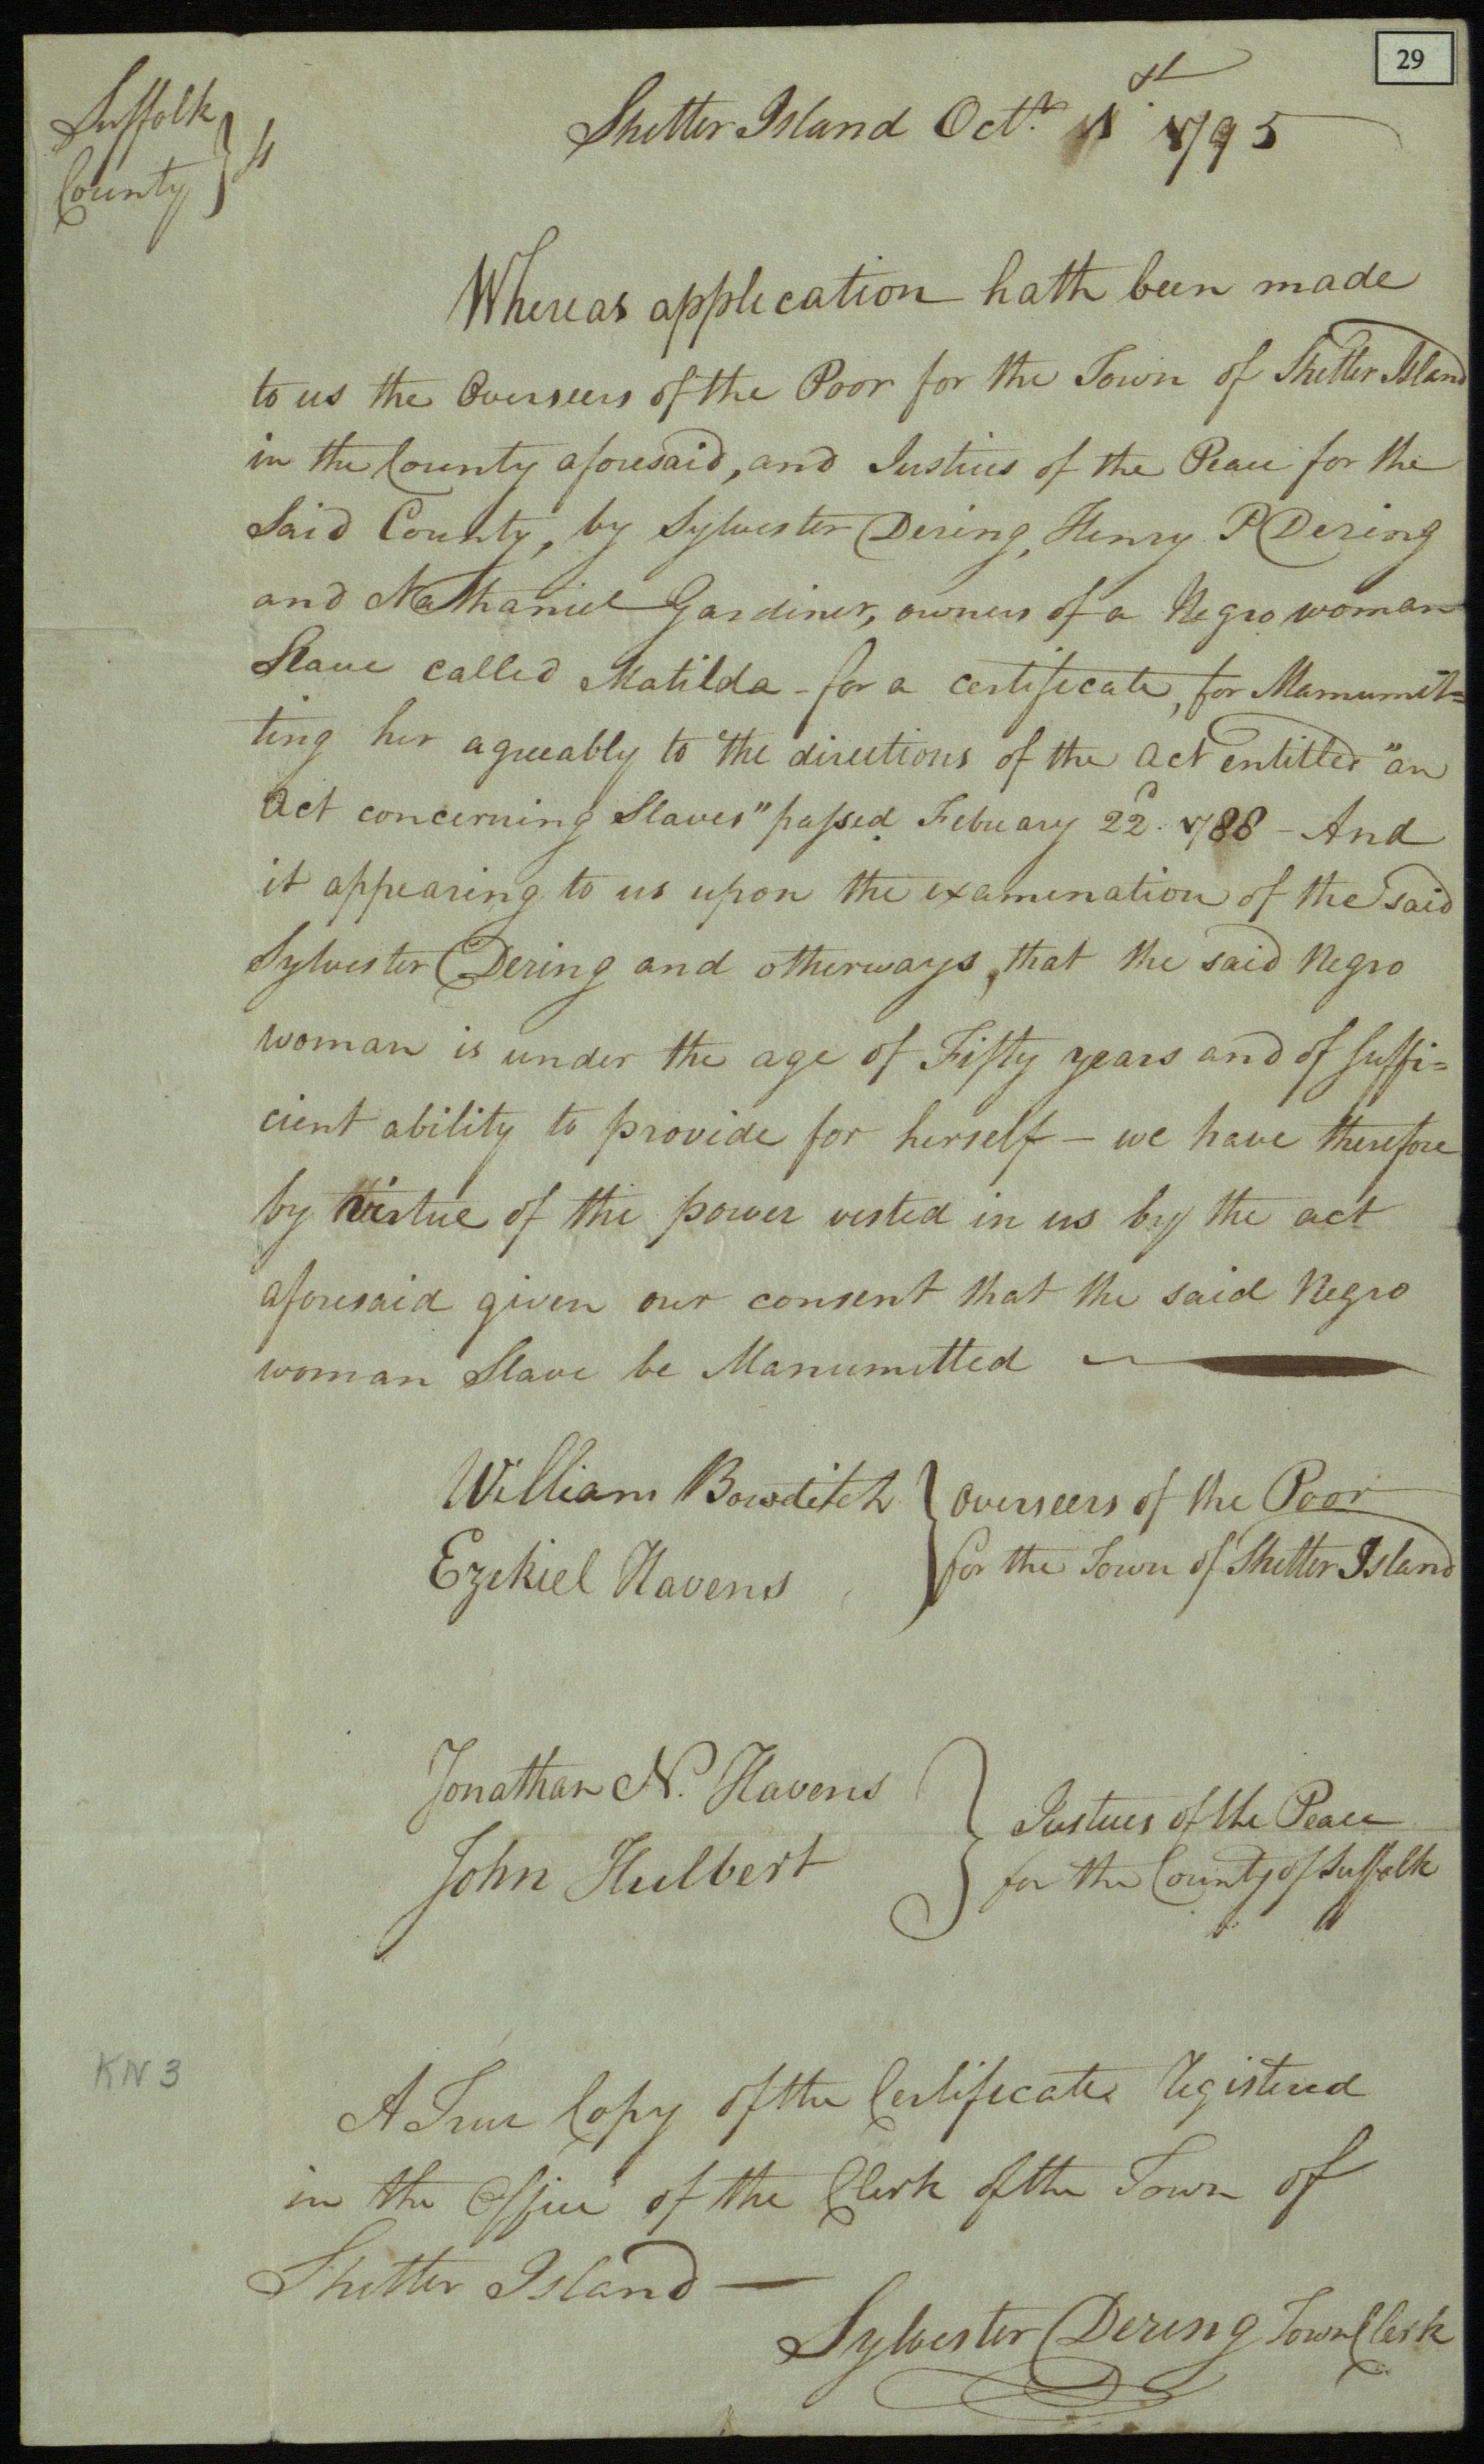 29
Suffolk
County } ss
Shelter Island Octr. 1st 1795
Whereas application hath been made
to us the Overseers of the Poor for the Town of Shelter Island
in the County aforesaid, and Justices of the Peace for the
Said County, by Sylvester Dering, Henry P Dering
and Nathaniel Gardiner, owners of a Negro woman
Slave called Matilda - for a certificate, for Manumit=
ting her agreeably to the directions of the act entitled "an
act concerning Slaves" passed Febuary 22d. 1788 - And
it appearing to us upon the examination of the said
Sylvester Dering and otherways, that the said Negro
woman is under the age of Fifty years and of suffi=
cient ability to provide for herself - we have therefore
by virtue of the power vested in us by the act
aforesaid given our consent that the said Negro
woman Slave be Manumitted
William Bowditch } Overseers of the Poor
Ezekiel Havens } for the Town of Shelter Island
Jonathan N. Havens } Justices of the Peace
John Hulbert } for the County of Suffolk
KN 3
A True Copy of the Certificate Registered
in the Office of the Clerk of the Town of
Shelter Island —
Sylvester Dering Town Clerk